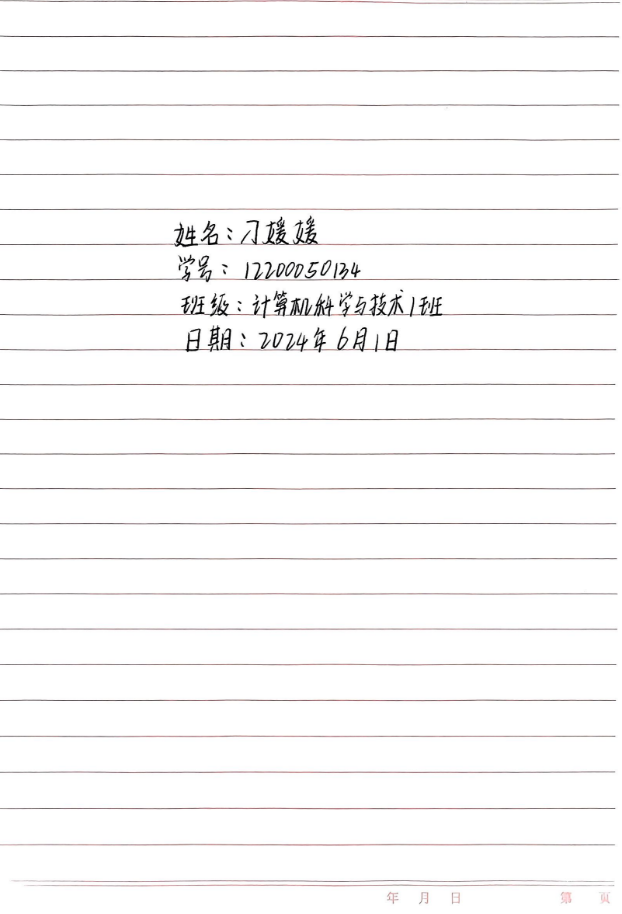 姓名：刁媛媛
学号：12200050134
班级：计算机科学与技术1班
日期：2024年6月1日
年 月 日 第 页